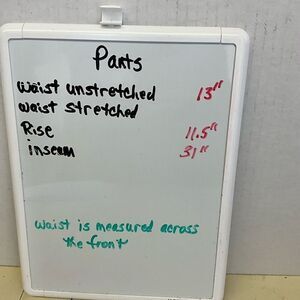 Pants
Waist unstretched 13"
waist stretched
Rise 11.5"
inseam 31"
Waist is measured across
the front